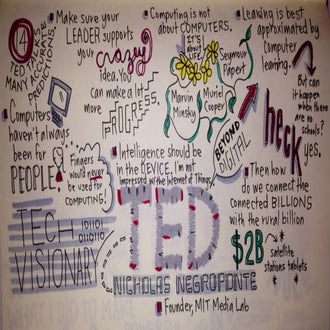 14 TED
TALKS,
MANY ACCURATE
PREDICTIONS.
Make sure your
LEADER supports
your crazy
idea. You
can make a lot
more
PROGRESS.
Computing is not
about COMPUTERS.
IT'S
about
LIFE
Seymour
Papert
Marvin
Minsky
Muriel
Cooper
BEYOND
DIGITAL
Learning is best
approximated by
Computer
learning.
But can
it happen
when there
are no
schools?
heck
yes.
Computers
haven't always
been for
PEOPLE.
Fingers
would never
be used for
COMPUTING!
Intelligence should be
in the DEVICE. I'm not
impressed w/the Internet of Things.
Then how
do we connect the
connected BILLIONS
with the rural billion
$2B
satellite
stations tablets
TECH
VISIONARY
101101
011010
TED
NICHOLAS NEGROPONTE
Founder, MIT Media Lab